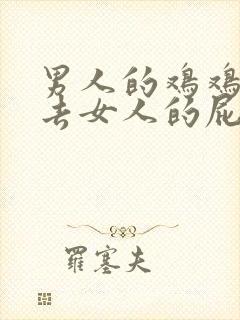 男人的鸡鸡
去女人的屁
罗塞夫